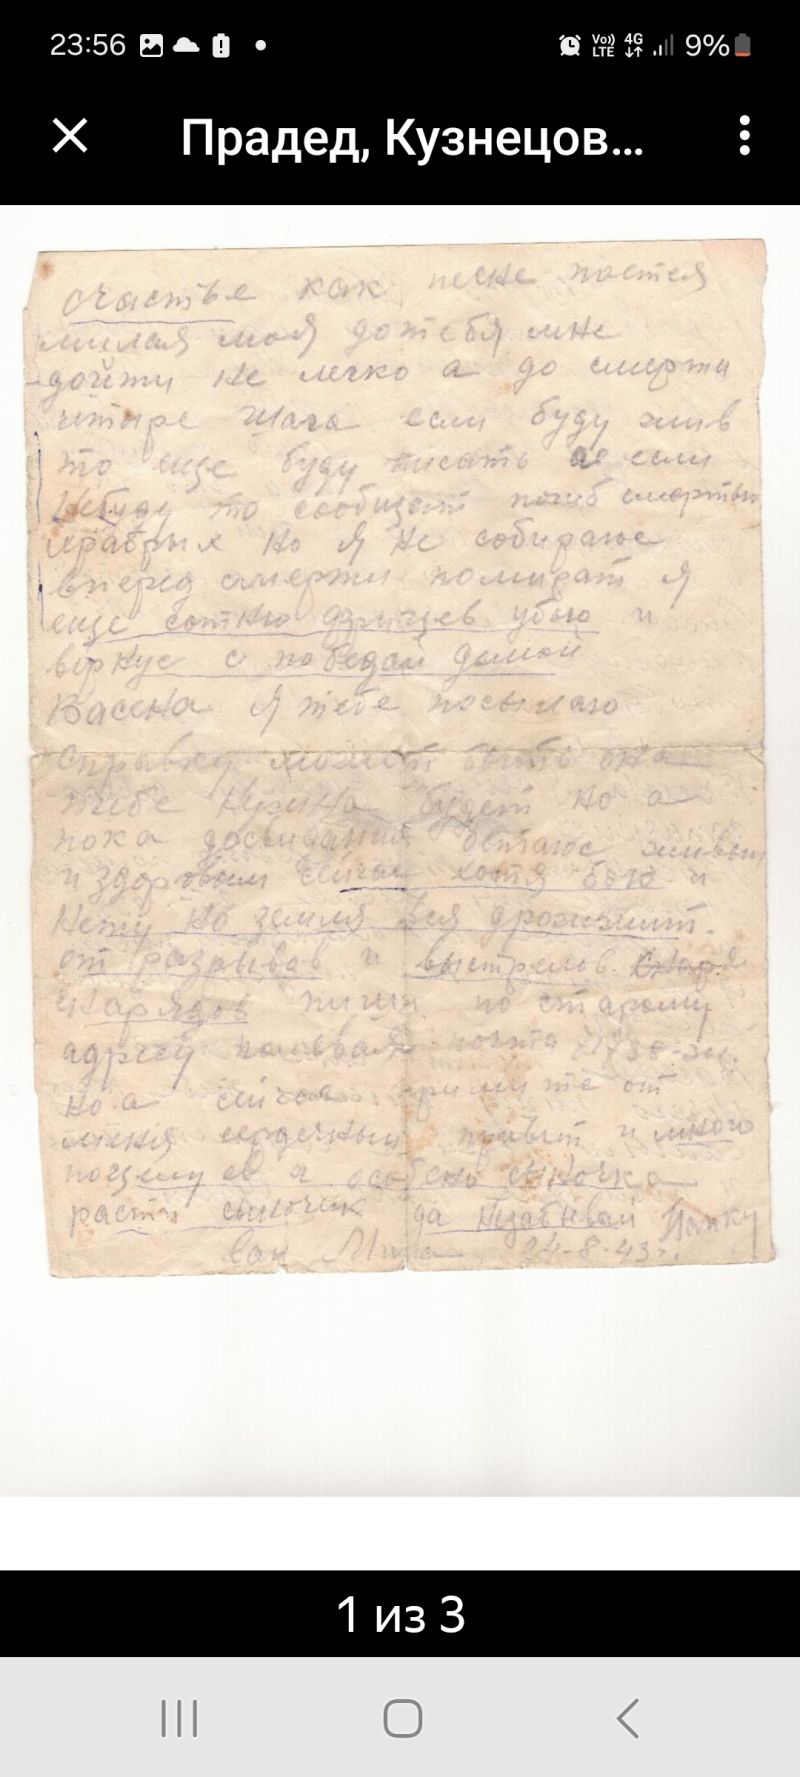 23:56
Vo)) LTE 4G 9%
Прадед, Кузнецов...
счастье как песне поется
милая моя до тебя мне
дойти не легко а до смерти
читыре шага если буду жив
то еще буду писать а если
небуду то сообщат погиб смертью
храбрых но я не собираюс
вперед смерти помират я
еще сотню фрицев убью и
вернус с победай домой
Васена я тебе посылаю
справку может быть она
тебе нужна будет но а
пока досвидания остаюс живым
и здоровым сейчас хотя бою и
нету но земля вся дрожжит
от разрывов и выстрелов
снарядов пиши по старому
адресу полевая почта
но а сейчас примите от
меня сердечный привет и много
поцелуев а особено сыночка
расти сыночик да не забывай папку
ваш Миша 24-8-43г.
1 из 3